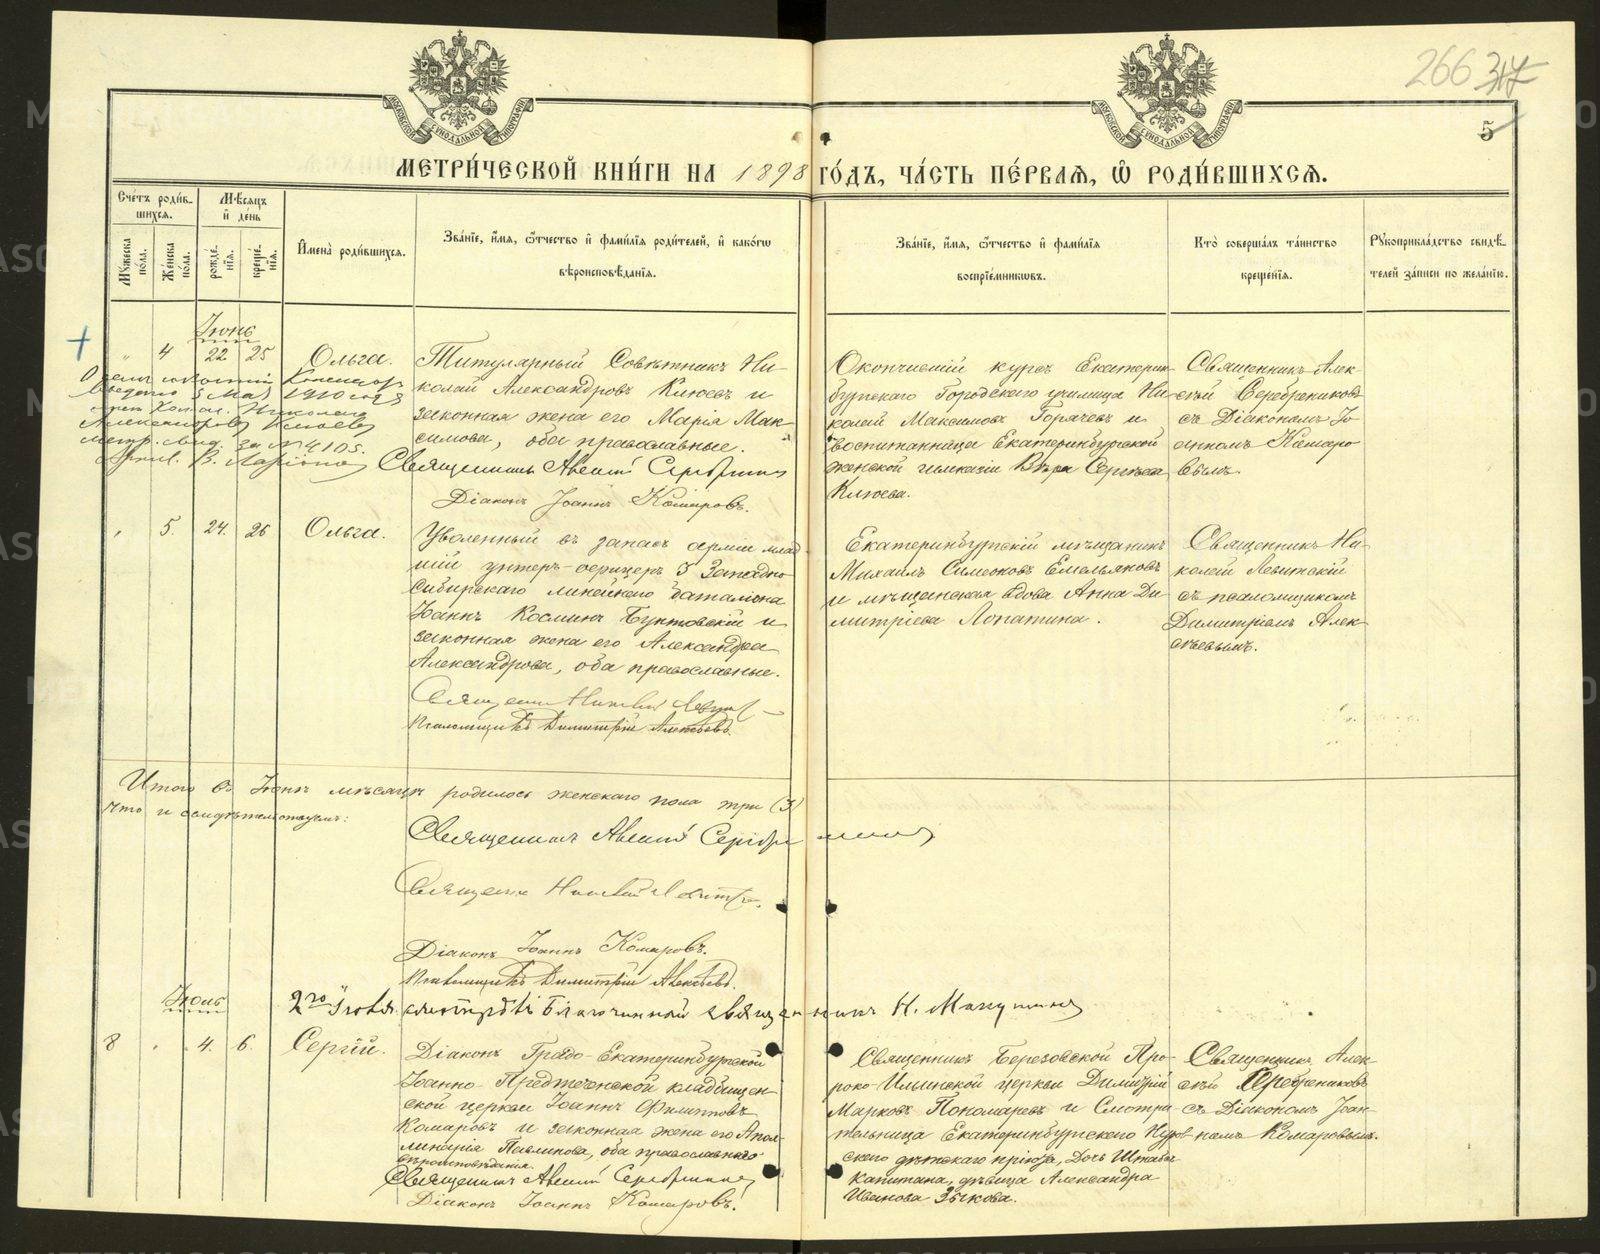 266 317
5
МОСКОВСКОЙ СѴНОДАЛЬНОЙ ТИПОГРАФІИ
МОСКОВСКОЙ СѴНОДАЛЬНОЙ ТИПОГРАФІИ
МЕТРИ́ЧЕСКОЙ КНИ́ГИ НА 1898 ГО́ДЪ, ЧА́СТЬ ПЕ́РВАЯ, Ѽ РОДИ́ВШИХСЯ.
Сче́тъ роди́в-
шихся.
Мѣ́сяцъ
и҆ день
Мꙋ́жеска
по́ла.
Же́нска
по́ла.
рожде́-
нїѧ.
креще́-
нїѧ.
И҆мена̀ роди́вшихся.
Зва́нїе, и҆́мя, ѻ҆́тчество и҆ фами́лїя роди́телей, и҆ како́гѡ
вѣроисповѣ́данїя.
Зва́нїе, и҆́мя, ѻ҆́тчество и҆ фами́лїя
воспрїе́мникѡвъ.
Кто̀ соверша́лъ та́инство
креще́нїя.
Рꙋкоприкла́дство свидѣ́-
телей за́писи по жела́нїю.
Іюнь
" 4 22 25 Ольга.
Титулярный Совѣтникъ Ни-
колай Александровъ Клюевъ и
законная жена его Марія Мак-
симова, оба православные.
Священникъ Алексій Серебрениковъ
Діаконъ Іоаннъ Комаровъ.
Окончившій курсъ Екатерин-
бургскаго Городскаго училища Ни-
колай Максимовъ Горячевъ и
воспитанница Екатеринбургской
женской гимназіи Вѣра Сергѣева
Клюева.
Священникъ Алек-
сѣй Серебрениковъ
съ Діакономъ Іо-
анномъ Комаро-
вымъ.
5 Мая 1910 года
Николаю
Александрову Клюеву
метр. свид. за № 4105.
" 5. 24. 26 Ольга.
Уволенный въ запасъ арміи млад-
шій унтеръ-офицеръ 3 Западно-
Сибирскаго линейнаго баталіона
Іоаннъ Косминъ Бунтовскій и
законная жена его Александра
Александрова, оба православные.
Священникъ Николай Левитскій
Псаломщикъ Димитрій Алексѣевъ.
Екатеринбургскій мѣщанинъ
Михаилъ Симеоновъ Емельяновъ
и мѣщанская вдова Анна Ди-
митріева Лопатина.
Священникъ Ни-
колай Левитскій
съ псаломщикомъ
Димитріемъ Алек-
сѣевымъ.
Итого въ Іюнѣ мѣсяцѣ родилось женскаго пола три (3)
что и свидѣтельствуемъ:
Священникъ Алексій Серебрениковъ
Священникъ Николай Левитскій
Діаконъ Іоаннъ Комаровъ.
Псаломщикъ Димитрій Алексѣевъ.
2го Іюля смотрѣлъ Благочинный священникъ Н. Мануринъ
Іюль
8 " 4. 6. Сергій.
Діаконъ Градо-Екатеринбургской
Іоанно-Предтеченской кладбищен-
ской церкви Іоаннъ Филипповъ
Комаровъ и законная жена его Апол-
линарія Павлинова, оба православнаго
вѣроисповѣданія.
Священникъ Алексій Серебрениковъ
Діаконъ Іоаннъ Комаровъ.
Священникъ Березовской Про-
роко-Ильинской церкви Димитрій
Марковъ Пономаревъ и Смотри-
тельница Екатеринбургскаго Нуров-
скаго дѣтскаго пріюта, дочь Штабсъ-
капитана, дѣвица Александра
Иванова Зыкова.
Священникъ Алек-
сѣй Серебрениковъ
съ Діакономъ Іоан-
номъ Комаровымъ.